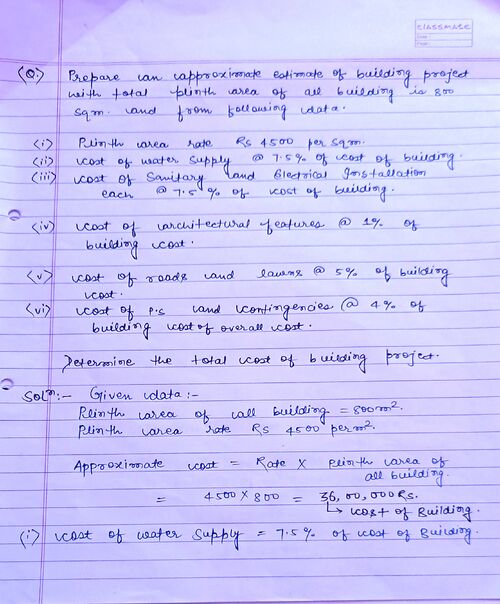 classmate
Date
Page
(Q.) Prepare an approximate estimate of building project
with total plinth area of all building is 800
sqm. and from following data.
(i) Plinth area rate Rs 4500 per sqm.
(ii) cost of water supply @ 7.5% of cost of building.
(iii) cost of Sanitary and Electrical Installation
each @ 7.5 % of cost of building.
(iv) cost of architectural features @ 1% of
building cost.
(v) cost of roads and lawns @ 5% of building
cost.
(vi) cost of P.S and contingencies @ 4% of
building cost of overall cost.
Determine the total cost of building project.
Solⁿ:- Given data:-
Plinth area of all building = 800m².
Plinth area rate Rs 4500 per m².
Approximate cost = Rate × Plinth area of
all building.
= 4500 × 800 = 36,00,000 Rs.
↳ cost of Building.
(i) cost of water supply = 7.5% of cost of Building.